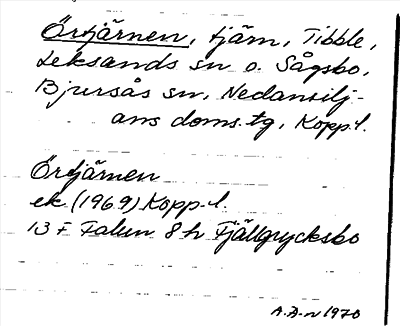 Örtjärnen, tjärn, Tibble,
Leksands sn o. Sågsbo,
Bjursås sn, Nedansilj-
ans doms.tg, Kopp.l.
Örtjärnen
ek (1969) Kopp.l.
13 F Falun 8 h Fjällgrycksbo
A.A-n 1970